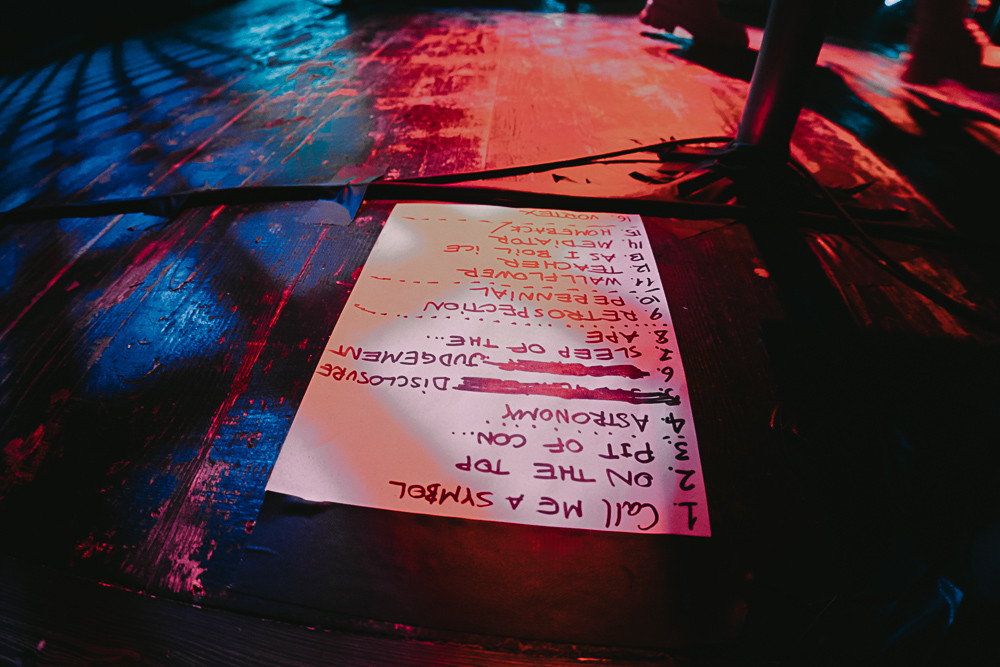 1. Call ME A SYMBOL
2. ON THE TOP
3. PIT OF CON...
4. ASTRONOMY
5. DISCLOSURE
6. JUDGEMENT
7. SLEEP OF THE...
8. APE
9. RETROSPECTION
10. PERENNIAL
11. WALLFLOWER
12. TEACHER
13. AS I BOIL ICE
14. MEDIATOR
15. HOMEBACK
16. VORTEX